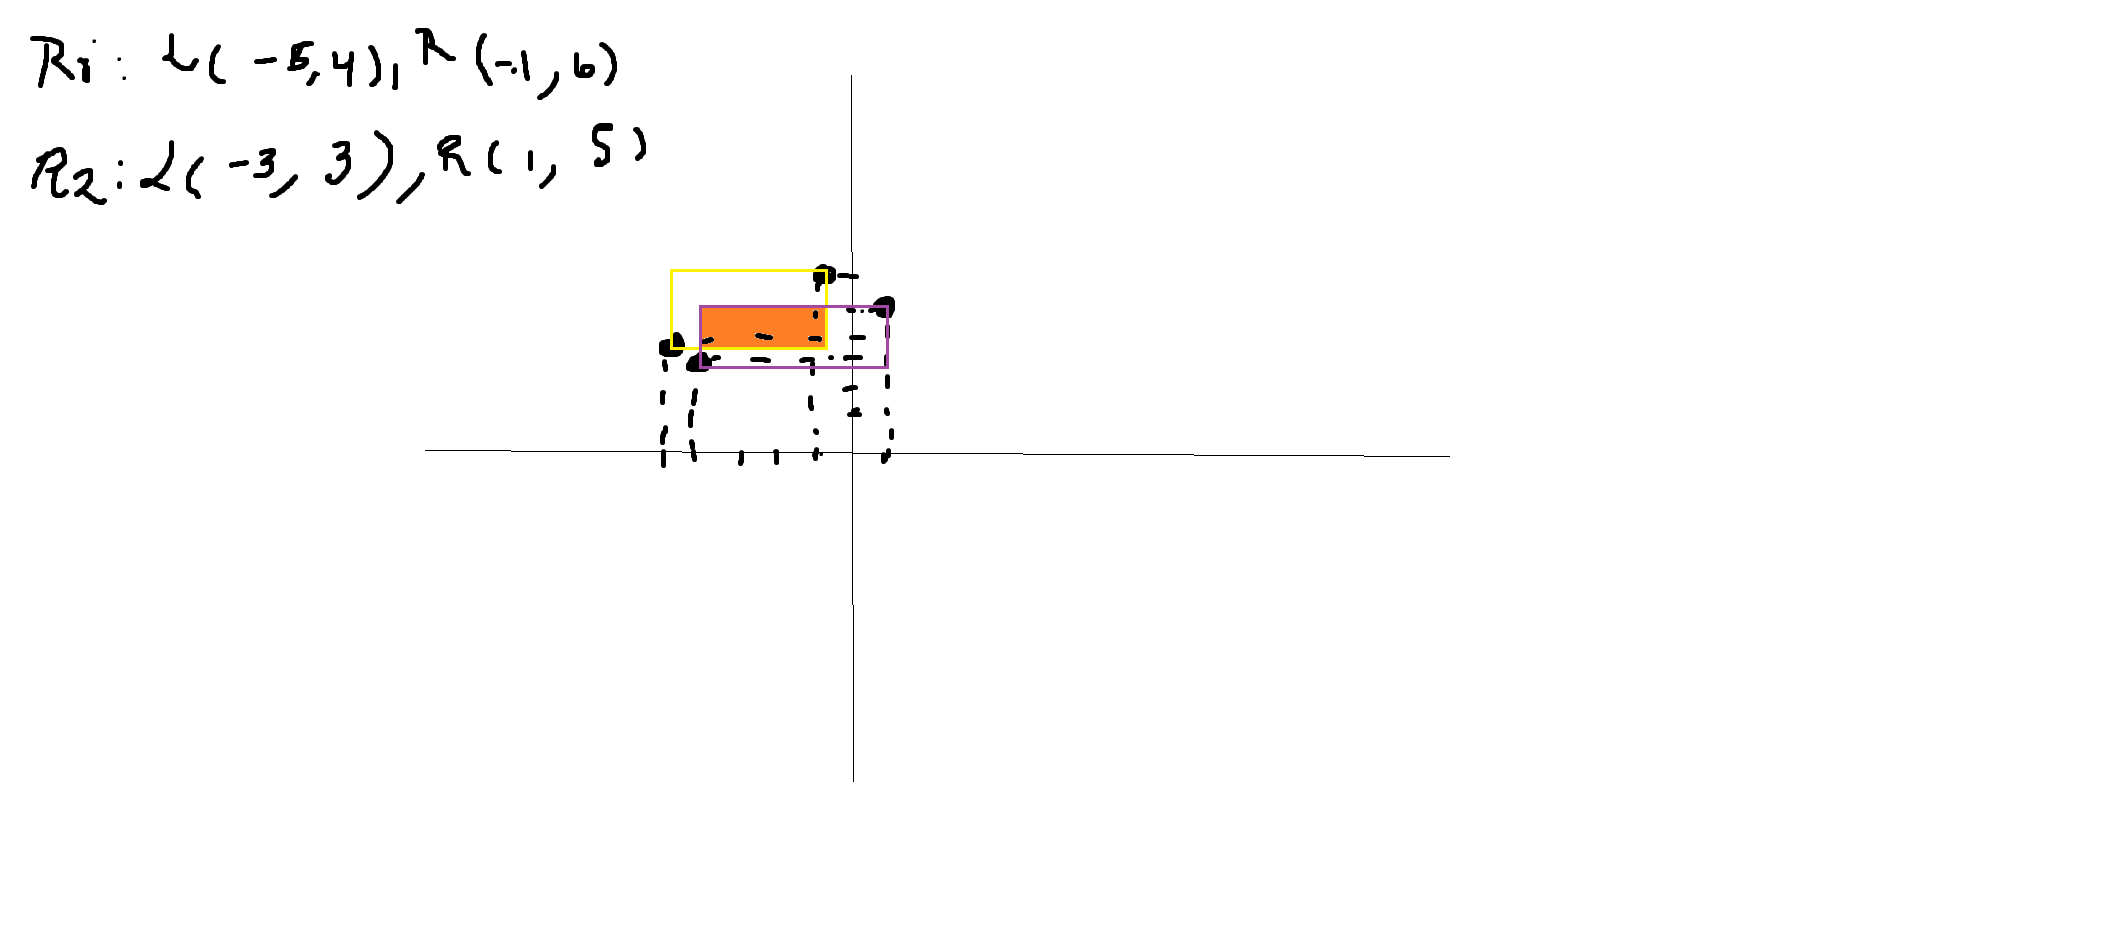 R1: L(-5,4), R(-1,6)
R2: L(-3, 3), R(1, 5)